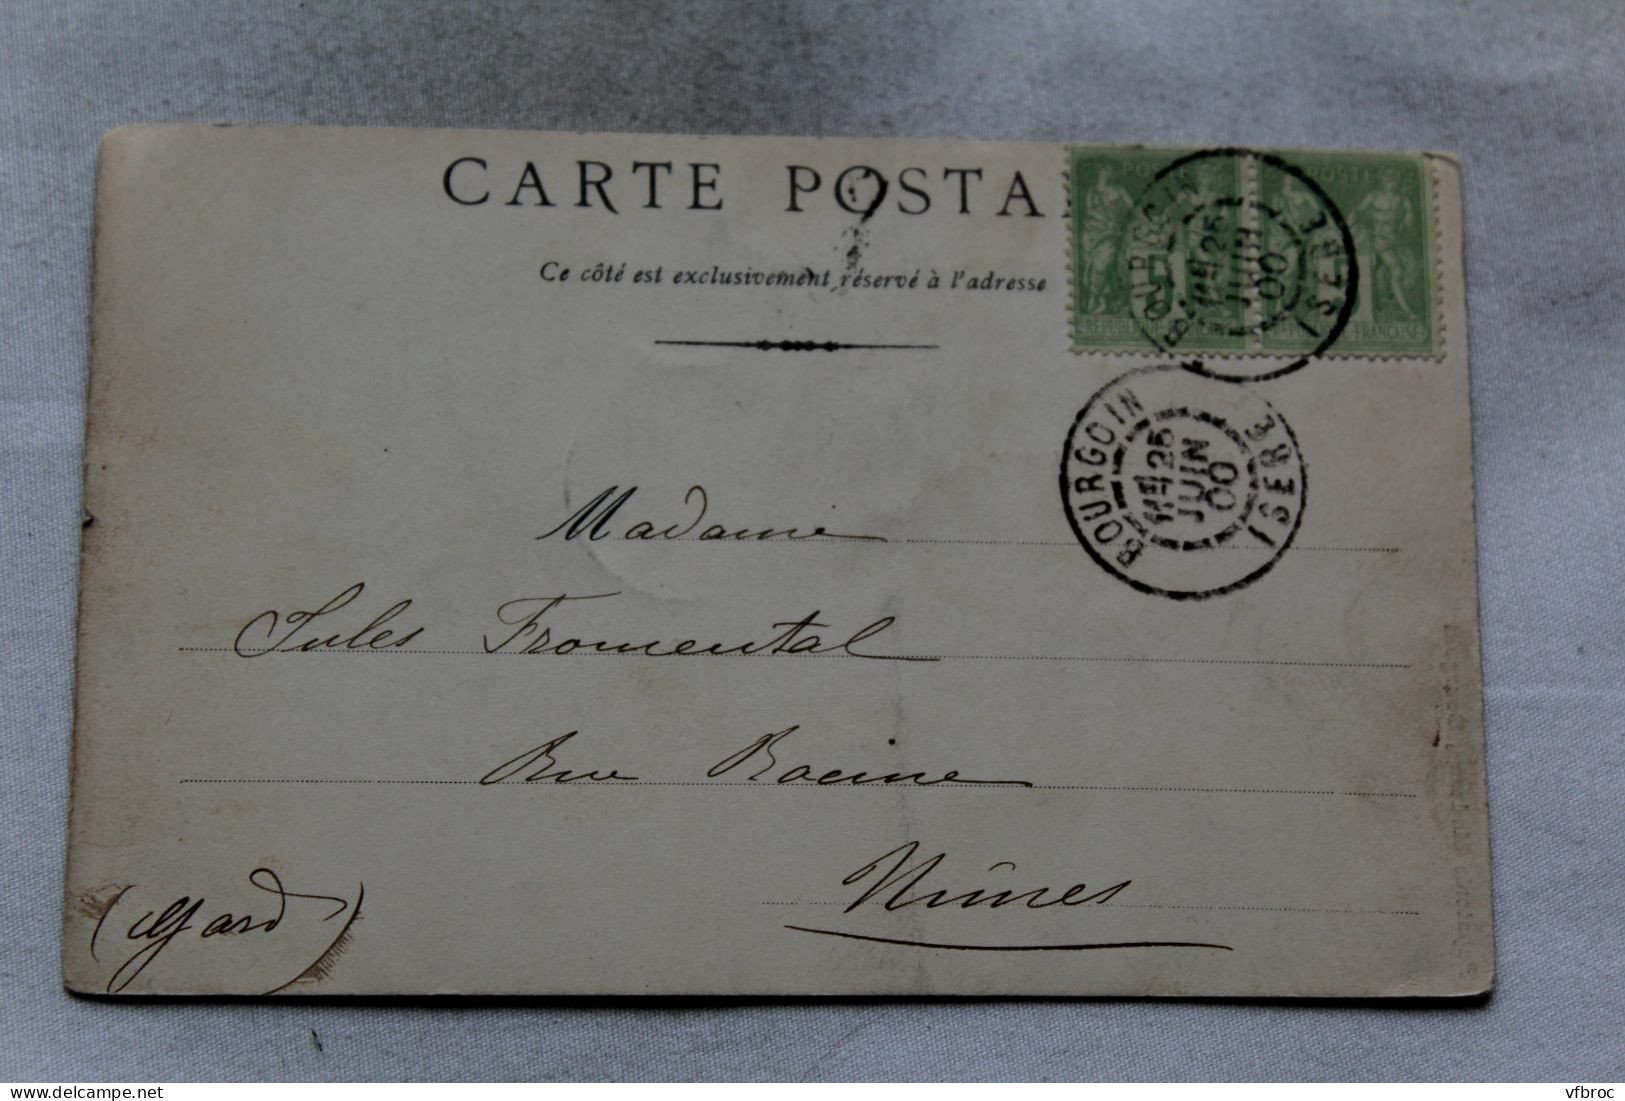 CARTE POSTA
Ce côté est exclusivement réservé à l'adresse
POSTE
POSTE
REPUBLIQUE FRANÇAISE
BOURGOIN
25
JUIN
00
ISERE
BOURGOIN
25
JUIN
00
ISERE
Madame
Jules Fromental
Rue Racine
Nîmes
(Gard)
delcampe.net
vfbroc